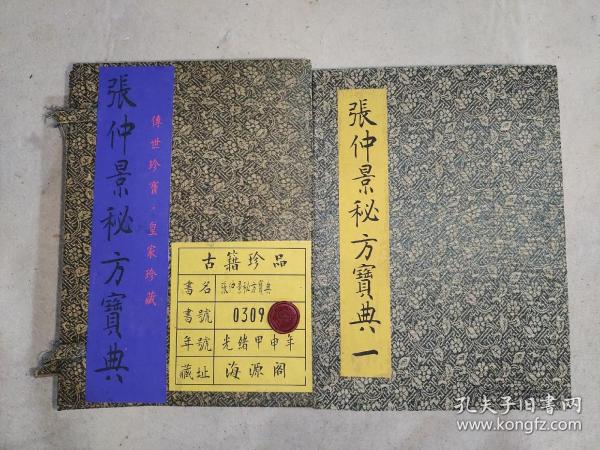 張仲景秘方寶典
傳世珍寶·皇家珍藏
古籍珍品
書名 張仲景秘方寶典
書號 0309
年號 光緒甲申年
藏址 海源阁
張仲景秘方寶典一
孔夫子旧書网
www.kongfz.com